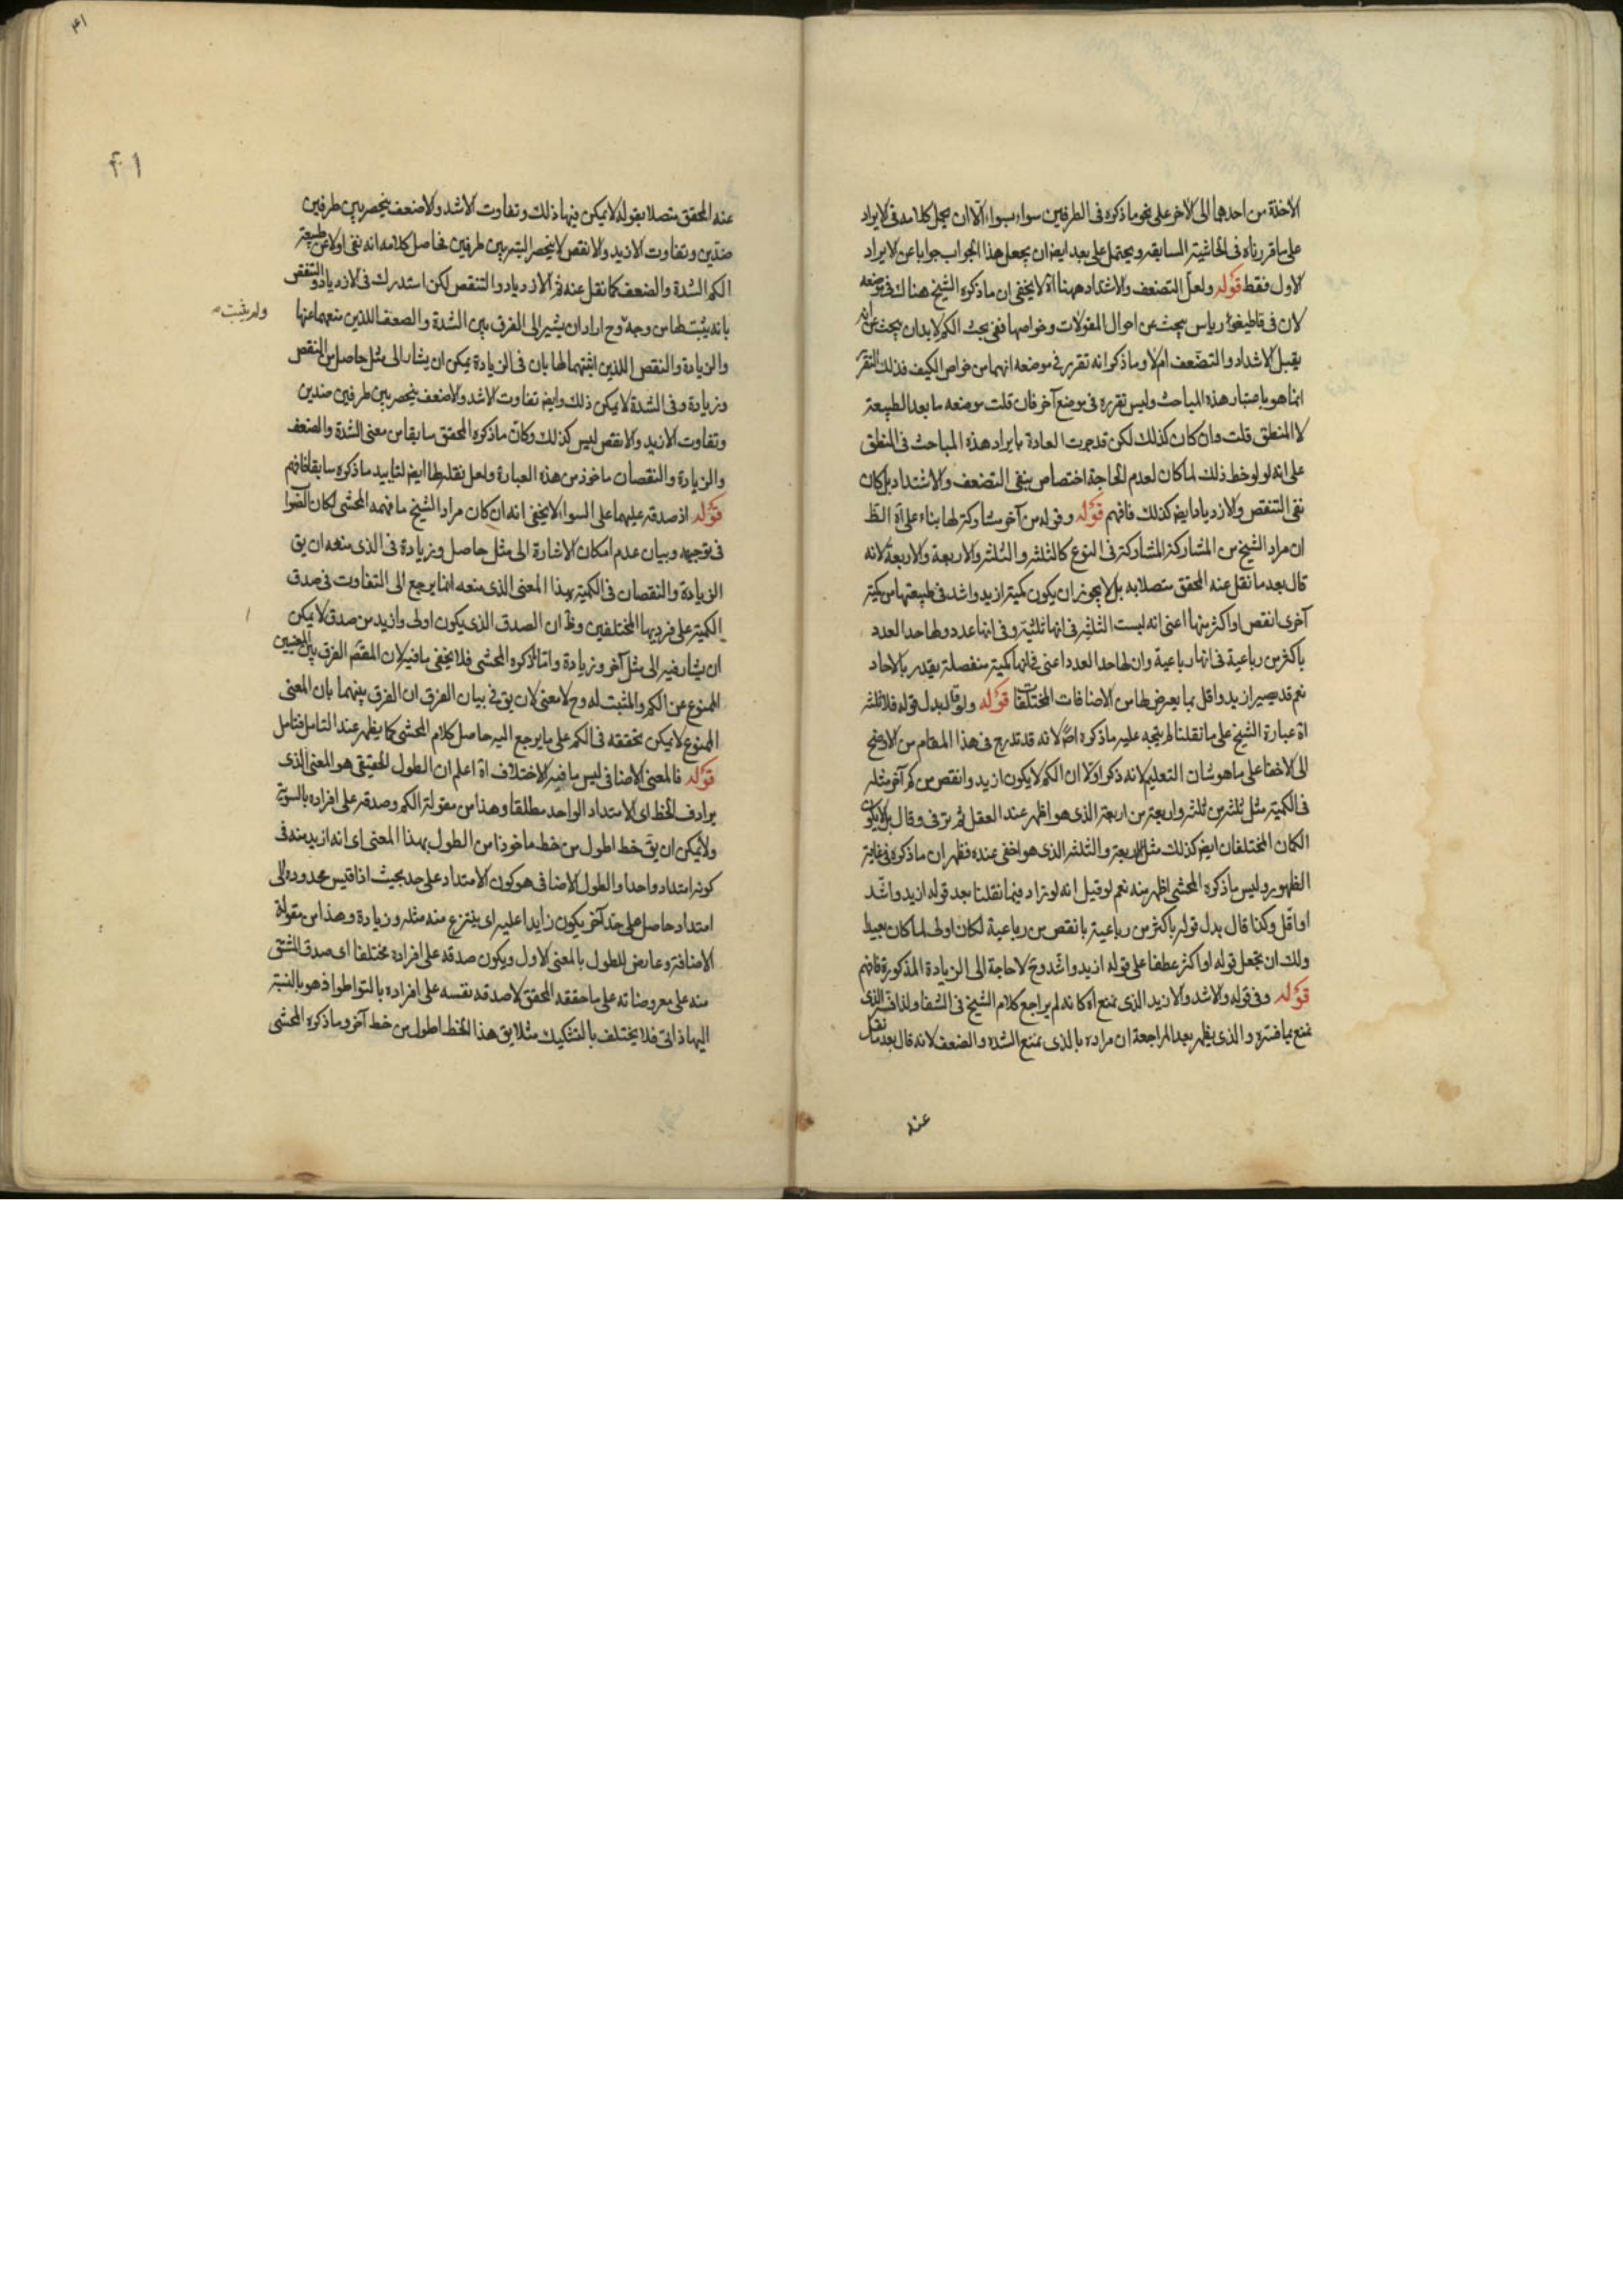 الأخذة من احدهما الى الآخر على نحو ما ذكره فى الطرفين سواء بسواء الّا ان يحمل كلامه فى الايراد
على ما قررناه فى الحاشية السابقه ويحتمل على بعد ايضا ان يجعل هذا الجواب جوابا عن الايراد
الاول فقط قوله ولعل التضعف والاشتداد ههنا اه لا يخفى ان ما ذكره الشيخ هناك فى موضعه
لان فى قاطيغورياس يبحث عن احوال المقولات وخواصها ففى بحث الكم لا بد ان يبحث عن انه
يقبل الاشتداد والتضعف ام لا وما ذكروا انه تقرر فى موضعه انهما من خواص الكيف فذلك التقرر
انما هو باعتبار هذه المباحث وليس تقرره فى موضع آخر فان قلت موضعه ما بعد الطبيعة
لا المنطق قلت وان كان كذلك لكن قد جرت العادة بايراد هذه المباحث فى المنطق
على انه لو لوحظ ذلك لما كان لعدم الحاجة اختصاص بنفى التضعف والاشتداد بل كان
نفى التنقص والازدياد ايضا كذلك فافهم قوله وقوله من آخر مشاركة لها بناء على اه الظ
ان مراد الشيخ من المشاركة المشاركة فى النوع كالثلثه والثلثه والاربعة والاربعة لانه
قال بعد ما نقل عنه المحقق متصلا به بل لا يجوز ان يكون كمية ازيد واشد فى طبيعتها من كمية
آخرى انقص او اكثر منها اعنى انه ليست الثلثه فى انها ثلثية وفى انها عدد ولها حد العدد
باكثر من رباعية فى انها رباعية وان لها حد العدد اعنى فى انها كمية منفصلة يقدر بالآحاد
نعم قد يصير ازيد واقل بما يعرض لها من الاضافات المختلفة قوله ولو قال بدل قوله فلا ثلثه
اه عبارة الشيخ على ما نقلنا لم يتجه عليه ماذكره اصلا لانه قد تدرج فى هذا المقام من الاوضح
الى الاخفا على ما هو شان التعليم لانه ذكر اولا ان الكم لا يكون ازيد وانقص من كم آخر مثله
فى الكمية مثل ثلثه من ثلثه واربعة من اربعة الذى هو اظهر عند العقل ثم ترقى وقال بل لا يكون
الكمان المختلفان ايضا كذلك مثل الاربعة والثلثه الذى هو اخفى عنده فظهر ان ما ذكره فى غاية
الظهور وليس ما ذكره المحشى اظهر منه نعم لو قيل انه لو زاد فيما نقلنا بعد قوله ازيد واشد
او اقل وكذا قال بدل قوله باكثر من رباعية بانقص من رباعية لكان اولى لما كان بعيدا
ولك ان تجعل قوله او اكثر عطفا على قوله ازيد واشد وح لا حاجة الى الزيادة المذكورة فافهم
قوله وفى قوله والاشد والازيد الذى نمنع اه كانه لم يراجع كلام الشيخ فى الشفا ولذا فسر الذى
نمنع بما فسره والذى يظهر بعد المراجعة ان مراده بالذى نمنع الشده والضعف لانه قال بعد ما نقل
عنه
٤١
٤١
عنه المحقق متصلا بقوله لا يمكن فيها ذلك وتفاوت الاشد والاضعف ينحصر بين طرفين
ضدّين وتفاوت الازيد والانقص لا ينحصر البتة بين طرفين فحاصل كلامه انه نفى اولا عن طبيعة
الكم الشدة والضعف كما نقل عنه ثم الازدياد والتنقص لكن استدرك فى الازدياد والتنقص
بانه يثبت لها من وجه وح اراد ان يشير الى الفرق بين الشدة والضعف اللذين منعهما عنها
ولم يثبت
والزيادة والنقص اللذين اثبتهما لها بان فى الزيادة يمكن ان يشار الى مثل حاصل من النقص
وزيادة وفى الشدة لا يمكن ذلك وايضا تفاوت الاشد والاضعف ينحصر بين طرفين ضدين
وتفاوت الازيد والانقص ليس كذلك وكان ما ذكره المحقق سابقا من معنى الشدة والضعف
والزيادة والنقصان ماخوذ من هذه العبارة ولعل نقله لها ايضا لتاييد ما ذكره سابقا فافهم
قوله اذ صدقه عليهما على السواء لا يخفى انه ان كان مراد الشيخ ما فهمه المحشى لكان الصواب
فى توجيهه وبيان عدم امكان الاشارة الى مثل حاصل وزيادة فى الذى منعه ان يق
الزيادة والنقصان فى الكمية بهذا المعنى الذى منعه انما يرجع الى التفاوت فى صدق
الكمية على فرديها المختلفين وظ ان الصدق الذى يكون اولى وازيد من صدق لا يمكن
ان يشار فيه الى مثل آخر وزيادة وامّا ما ذكره المحشى فلا يخفى ما فيه لان المقصّ الفرق بين المعنيين
الممنوع عن الكم والمثبت له وح لا معنى لان يق فى بيان الفرق ان الفرق بينهما بان المعنى
الممنوع لا يمكن تحققه فى الكم على ما يرجع اليه حاصل كلام المحشى كما يظهر عند التامل فتامل
قوله فالمعنى الاضافى ليس ما فيه الاختلاف اه اعلم ان الطول الحقيقى هو المعنى الذى
يرادف الخط اى الامتداد الواحد مطلقا وهذا من مقولة الكم وصدقه على افراده بالسوية
ولا يمكن ان يق خط اطول من خط ماخوذا من الطول بهذا المعنى اى انه ازيد منه فى
كونه امتدادا واحدا والطول الاضافى هو كون الامتداد على حد بحيث اذا قيس محدوده الى
امتداد حاصل على حد آخر يكون زايدا عليه اى ينتزع منه مثله وزيادة وهذا من مقولة
الاضافة وعارض للطول بالمعنى الاول ويكون صدقه على افراده مختلفا اى صدق المشتق
منه على معروضاته على ما حققه المحقق لا صدقه نفسه على افراده بالتواطوا اذ هو بالنسبة
اليها ذاتى فلا يختلف بالتشكيك مثلا يق هذا الخط اطول من خط آخر وما ذكره المحشى